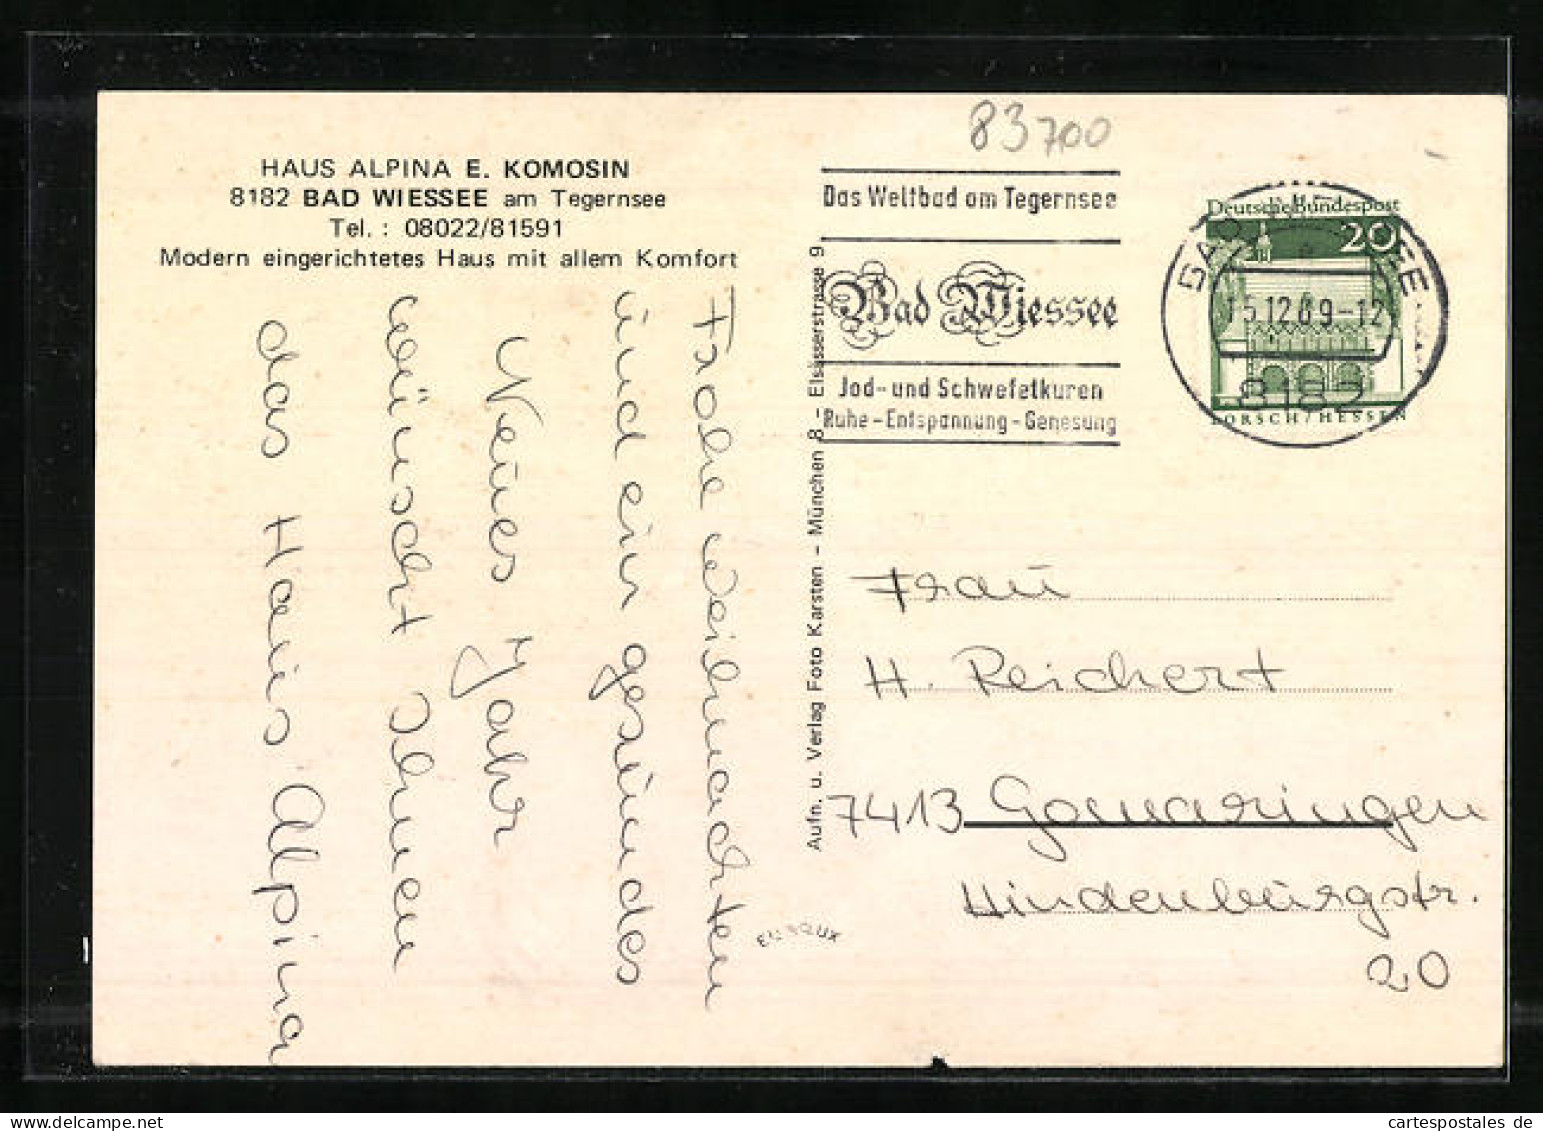 HAUS ALPINA E. KOMOSIN
8182 BAD WIESSEE am Tegernsee
Tel. : 08022/81591
Modern eingerichtetes Haus mit allem Komfort
Frohe Weihnachten
und ein gesundes
Neues Jahr
wünscht Ihnen
das Haus Alpina
Aufn. u. Verlag Foto Karsten - München 8 - Elsässerstrasse 9
83700
Das Weltbad am Tegernsee
Bad Wiessee
Jod- und Schwefelkuren
Ruhe - Entspannung - Genesung
Deutsche Bundespost
20
15.12.69-12
8182
LORSCH/HESSEN
Frau
H. Reichert
7413 Gomaringen
Hindenburgstr.
20
delcampe.net
cartespostales de